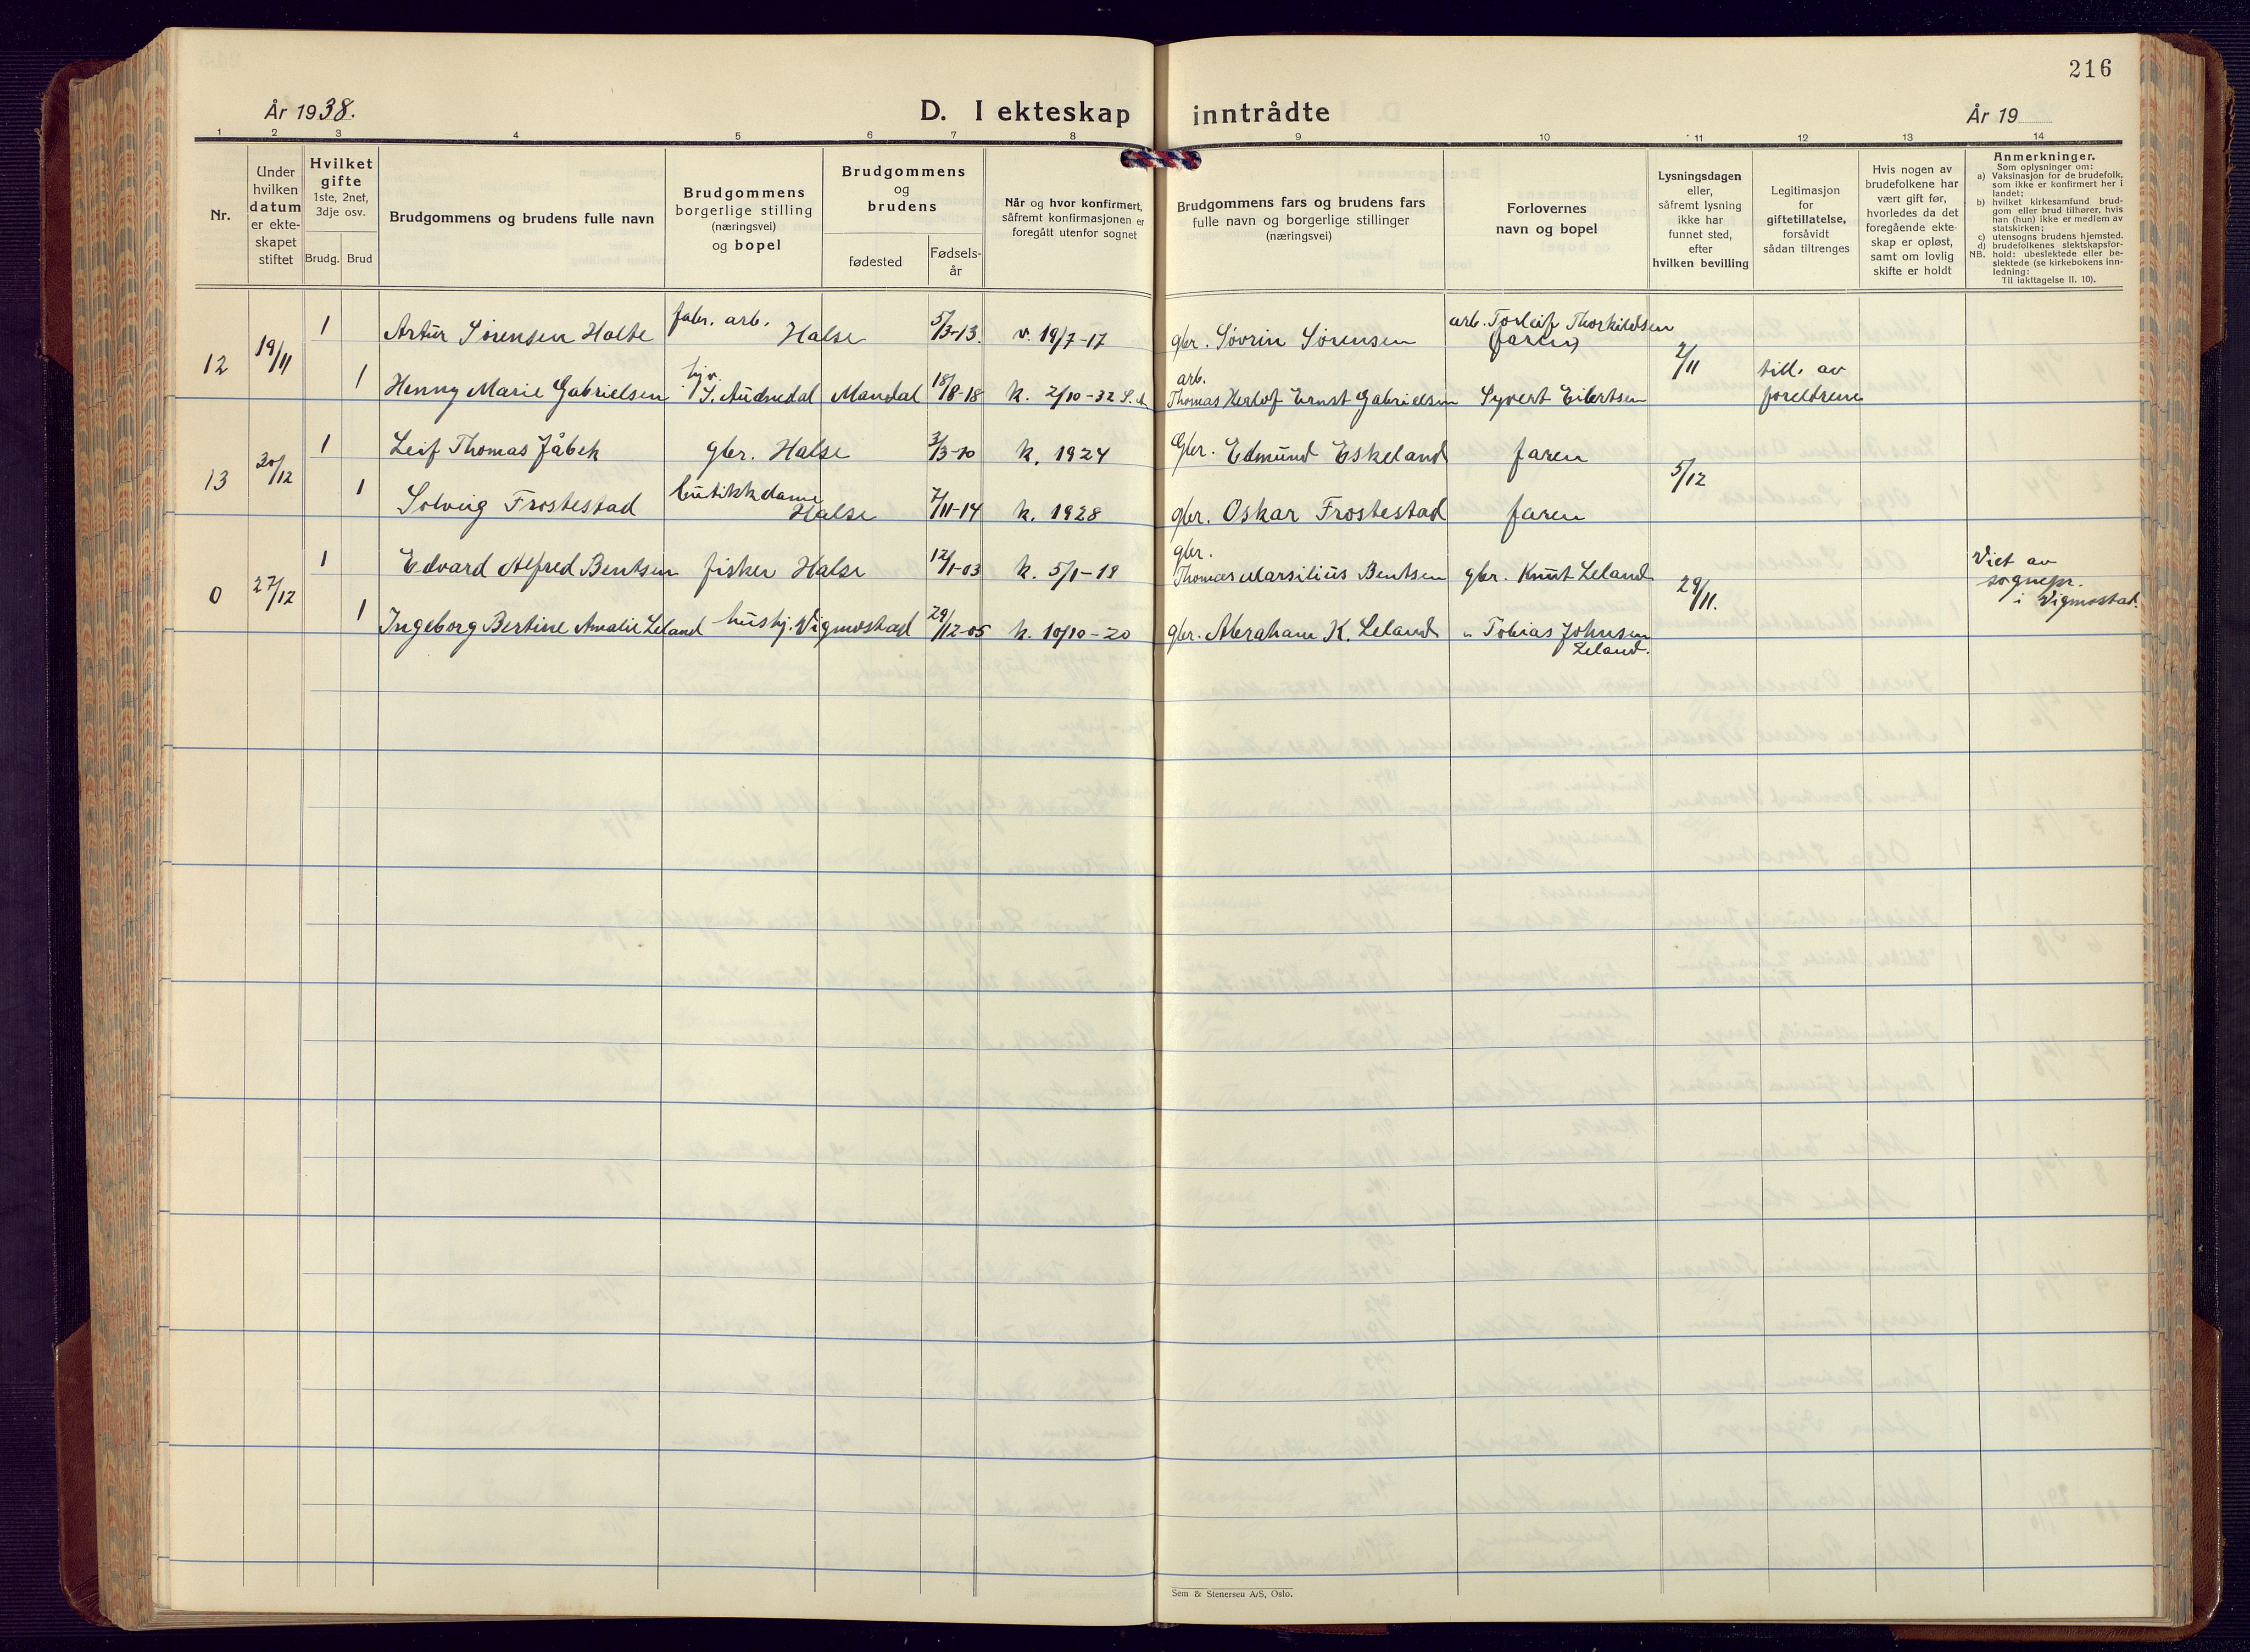 216
År 1938.
D. I ekteskap inntrådte
År 19
1 2 3 4 5 6 7 8 9 10 11 12 13 14
Nr.
Under
hvilken
datum
er ekte-
skapet
stiftet
Hvilket
gifte
1ste, 2net,
3dje osv.
Brudg.
Brud
Brudgommens og brudens fulle navn
Brudgommens
borgerlige stilling
(næringsvei)
og bopel
Brudgommens
og
brudens
fødested
Fødsels-
år
Når og hvor konfirmert,
såfremt konfirmasjonen er
foregått utenfor sognet
Brudgommens fars og brudens fars
fulle navn og borgerlige stillinger
(næringsvei)
Forlovernes
navn og bopel
Lysningsdagen
eller,
såfremt lysning
ikke har
funnet sted,
efter
hvilken bevilling
Legitimasjon
for
giftetillatelse,
forsåvidt
sådan tiltrenges
Hvis nogen av
brudefolkene har
vært gift før,
hvorledes da det
foregående ekte-
skap er opløst,
samt om lovlig
skifte er holdt
Anmerkninger.
Som oplysninger om:
a) Vaksinasjon for de brudefolk,
som ikke er konfirmert her i
landet;
b) hvilket kirkesamfund brud-
gom eller brud tilhører, hvis
han (hun) ikke er medlem av
statskirken;
c) utensogns brudens hjemsted.
d) brudefolkenes slektskapsfor-
NB. hold: ubeslektede eller be-
slektede (se kirkebokens inn-
ledning:
Til iakttagelse II. 10).
12 19/11 1 Artur Sørensen Halse fabr. arb. Halse 5/3-13. v. 19/7-17 gbr. Søvrin Sørensen arb. Torleif Thorkildsen (faren) 2/11
1 Henny Marie Gabrielsen hjv. S. Audnedal Mandal 18/8-18 k. 2/10-32 S. A arb. Thomas Herlof Ernst Gabrielsen Syvert Eilertsen till. av foreldrene
13 30/12 1 Leif Thomas Jåbek gbr. Halse 3/3-10 k. 1924 Gbr. Edmund Eskeland faren 5/12
1 Solveig Frostestad butikkdame Halse 7/11-14 k. 1928 gbr. Oskar Frostestad faren
0 27/12 1 Edvard Alfred Bentsen fisker Halse 12/1-03 k. 5/1-19 gbr. Thomas Marsilius Bentsen gbr. Knut Leland 29/11. Viet av sognepr. i Vigmostad.
1 Ingeborg Bertine Amalie Leland hushj. Vigmostad 29/12-05 k. 10/10-20 gbr. Abraham K. Leland " Tobias Johnsen Leland.
Sem & Stenersen A/S, Oslo.